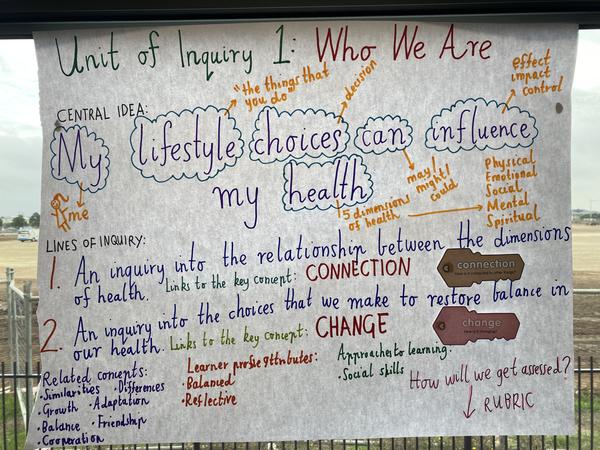 Unit of Inquiry 1: Who We Are
"the things that
you do"
decision
effect
impact
control
CENTRAL IDEA:
My lifestyle choices can influence
my health
me
may/
might/
could
5 dimensions
of health
Physical
Emotional
Social
Mental
Spiritual
LINES OF INQUIRY:
1. An inquiry into the relationship between the dimensions
of health. Links to the key concept: CONNECTION
connection
2. An inquiry into the choices that we make to restore balance in
our health. Links to the key concept: CHANGE
change
Related concepts:
• Similarities • Differences
• Growth • Adaptation
• Balance • Friendship
• Cooperation
Learner profile attributes:
• Balanced
• Reflective
Approaches to learning:
• Social skills
How will we get assessed?
RUBRIC